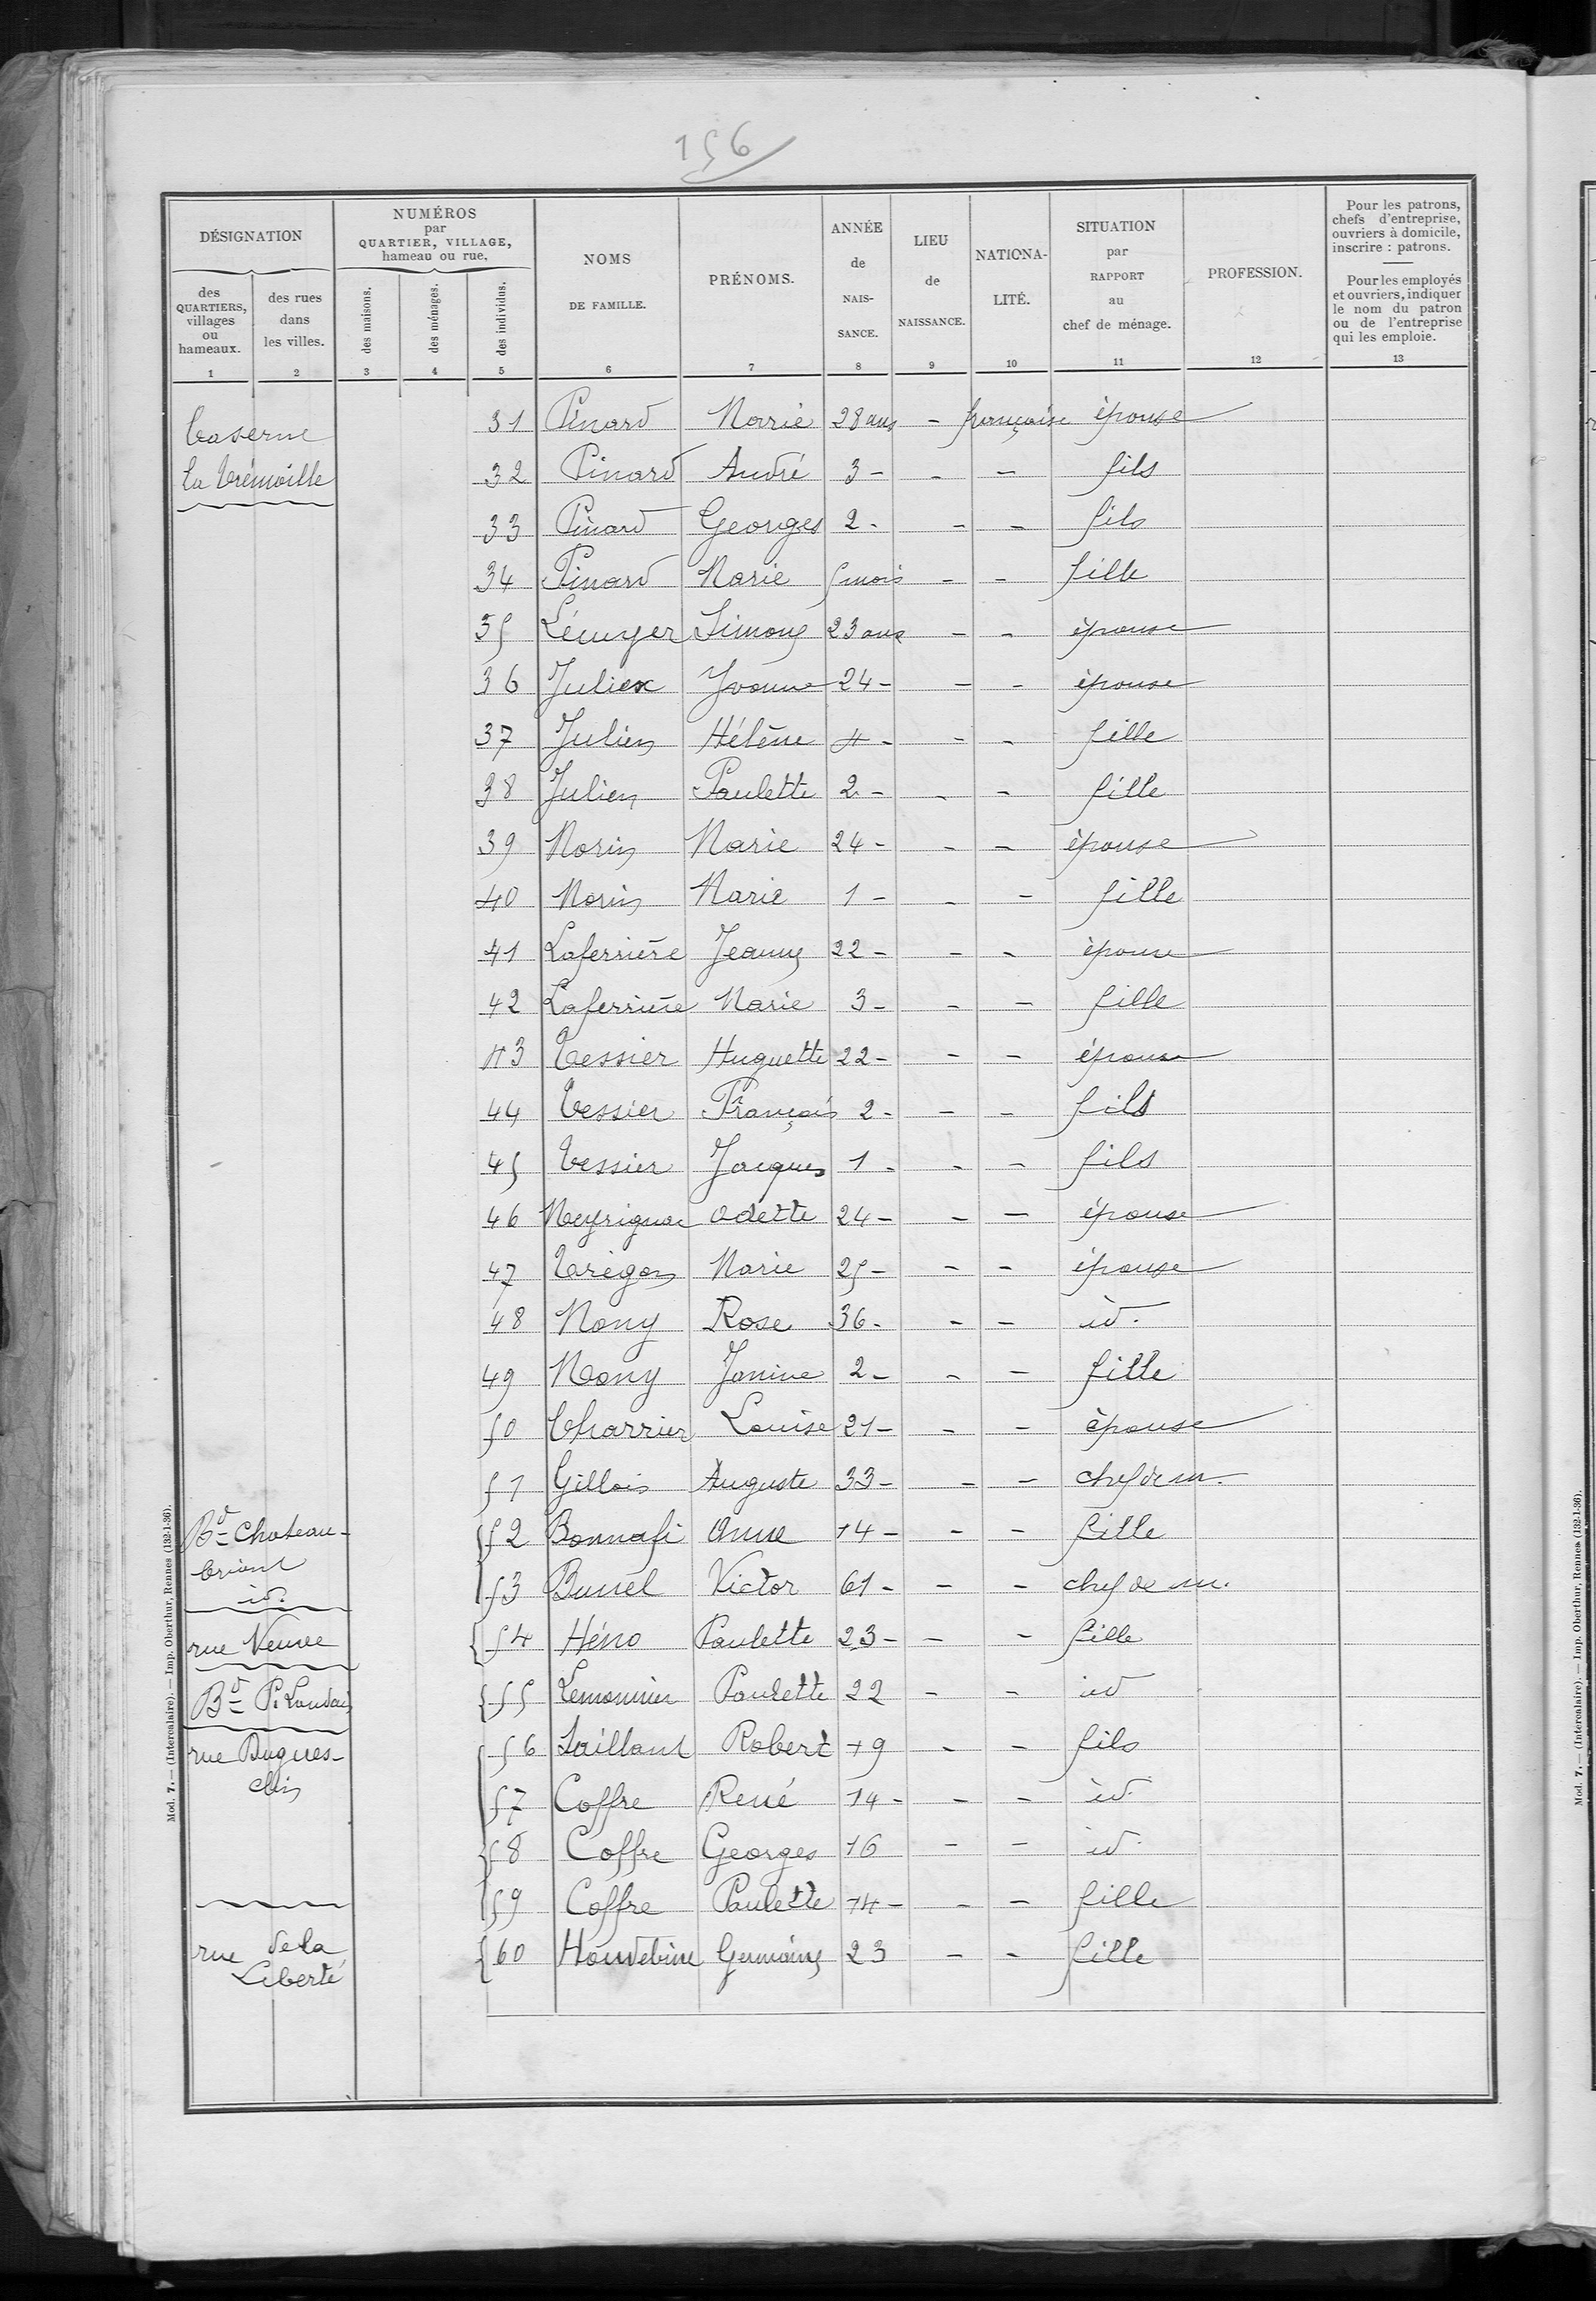 156
DÉSIGNATION
des QUARTIERS, villages ou hameaux.
des rues dans les villes.
NUMÉROS par QUARTIER, VILLAGE, hameau ou rue,
des maisons.
des ménages.
des individus.
NOMS DE FAMILLE.
PRÉNOMS.
ANNÉE de NAIS-SANCE.
LIEU de NAISSANCE.
NATIONA-LITÉ.
SITUATION par RAPPORT au chef de ménage.
PROFESSION.
Pour les patrons, chefs d'entreprise, ouvriers à domicile, inscrire : patrons.
Pour les employés et ouvriers, indiquer le nom du patron ou de l'entreprise qui les emploie.
1 2 3 4 5 6 7 8 9 10 11 12 13
Caserne
La Trémoille
31 Pinard Marie 28 ans - française épouse
32 Pinard André 3 - - - fils
33 Pinard Georges 2 - - - fils
34 Pinard Marie 5 mois - - fille
35 Lécuyer Simone 23 ans - - épouse
36 Julien Yvonne 24 - - - épouse
37 Julien Hélène 4 - - - fille
38 Julien Paulette 2 - - - fille
39 Morin Marie 24 - - - épouse
40 Morin Marie 1 - - - fille
41 Laferrière Jeanne 22 - - - épouse
42 Laferrière Marie 3 - - - fille
43 Tessier Huguette 22 - - - épouse
44 Tessier François 2 - - - fils
45 Tessier Jacques 1 - - - fils
46 Meyrignac Odette 24 - - - épouse
47 Trégon Marie 25 - - - épouse
48 Mony Rose 36 - - - id.
49 Mony Janine 2 - - - fille
50 Charrier Louise 21 - - - épouse
51 Gillois Auguste 33 - - - chef de m.
Bd Chateau-
briant
52 Bonnafi Anne 14 - - - fille
id.
53 Burel Victor 61 - - - chef de m.
rue Neuve
54 Héno Paulette 23 - - - fille
Bd P. Landais
55 Lemonnier Paulette 22 - - id
rue Dugues-
clin
56 Saillant Robert 19 - - fils
57 Coffre René 14 - - - id.
58 Coffre Georges 16 - - id.
59 Coffre Paulette 14 - - - fille
rue de la
Liberté
60 Houdebine Germaine 23 - - fille
Mod. 7. — (Intercalaire). — Imp. Oberthur, Rennes (132-1-36).
Mod. 7. — (Intercalaire). — Imp. Oberthur, Rennes (132-1-36).